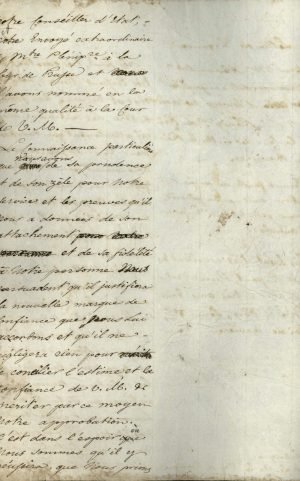 notre Conseiller d'Etat,
notre Envoyé extraordinaire
et Mtre Plénip.re à la
Cour de Russie et
l'avons nommé en la
même qualité à la Cour
de V. M. —
La Connaissance particuliè
que nous avons de sa prudence
et de son zèle pour Notre
service et les preuves qu'il
nous a données de son
attachement pour
et de sa fidélité
à Notre personne Nous
persuadent qu'il justifiera
la nouvelle marque de
confiance que Nous lui
accordons et qu'il ne
négligera rien pour
se concilier l'estime et la
confiance de V. M. et
mériter par ce moyen
Notre approbation.
C'est dans l'espoir où
Nous sommes qu'il y
réussira, que Nous prions